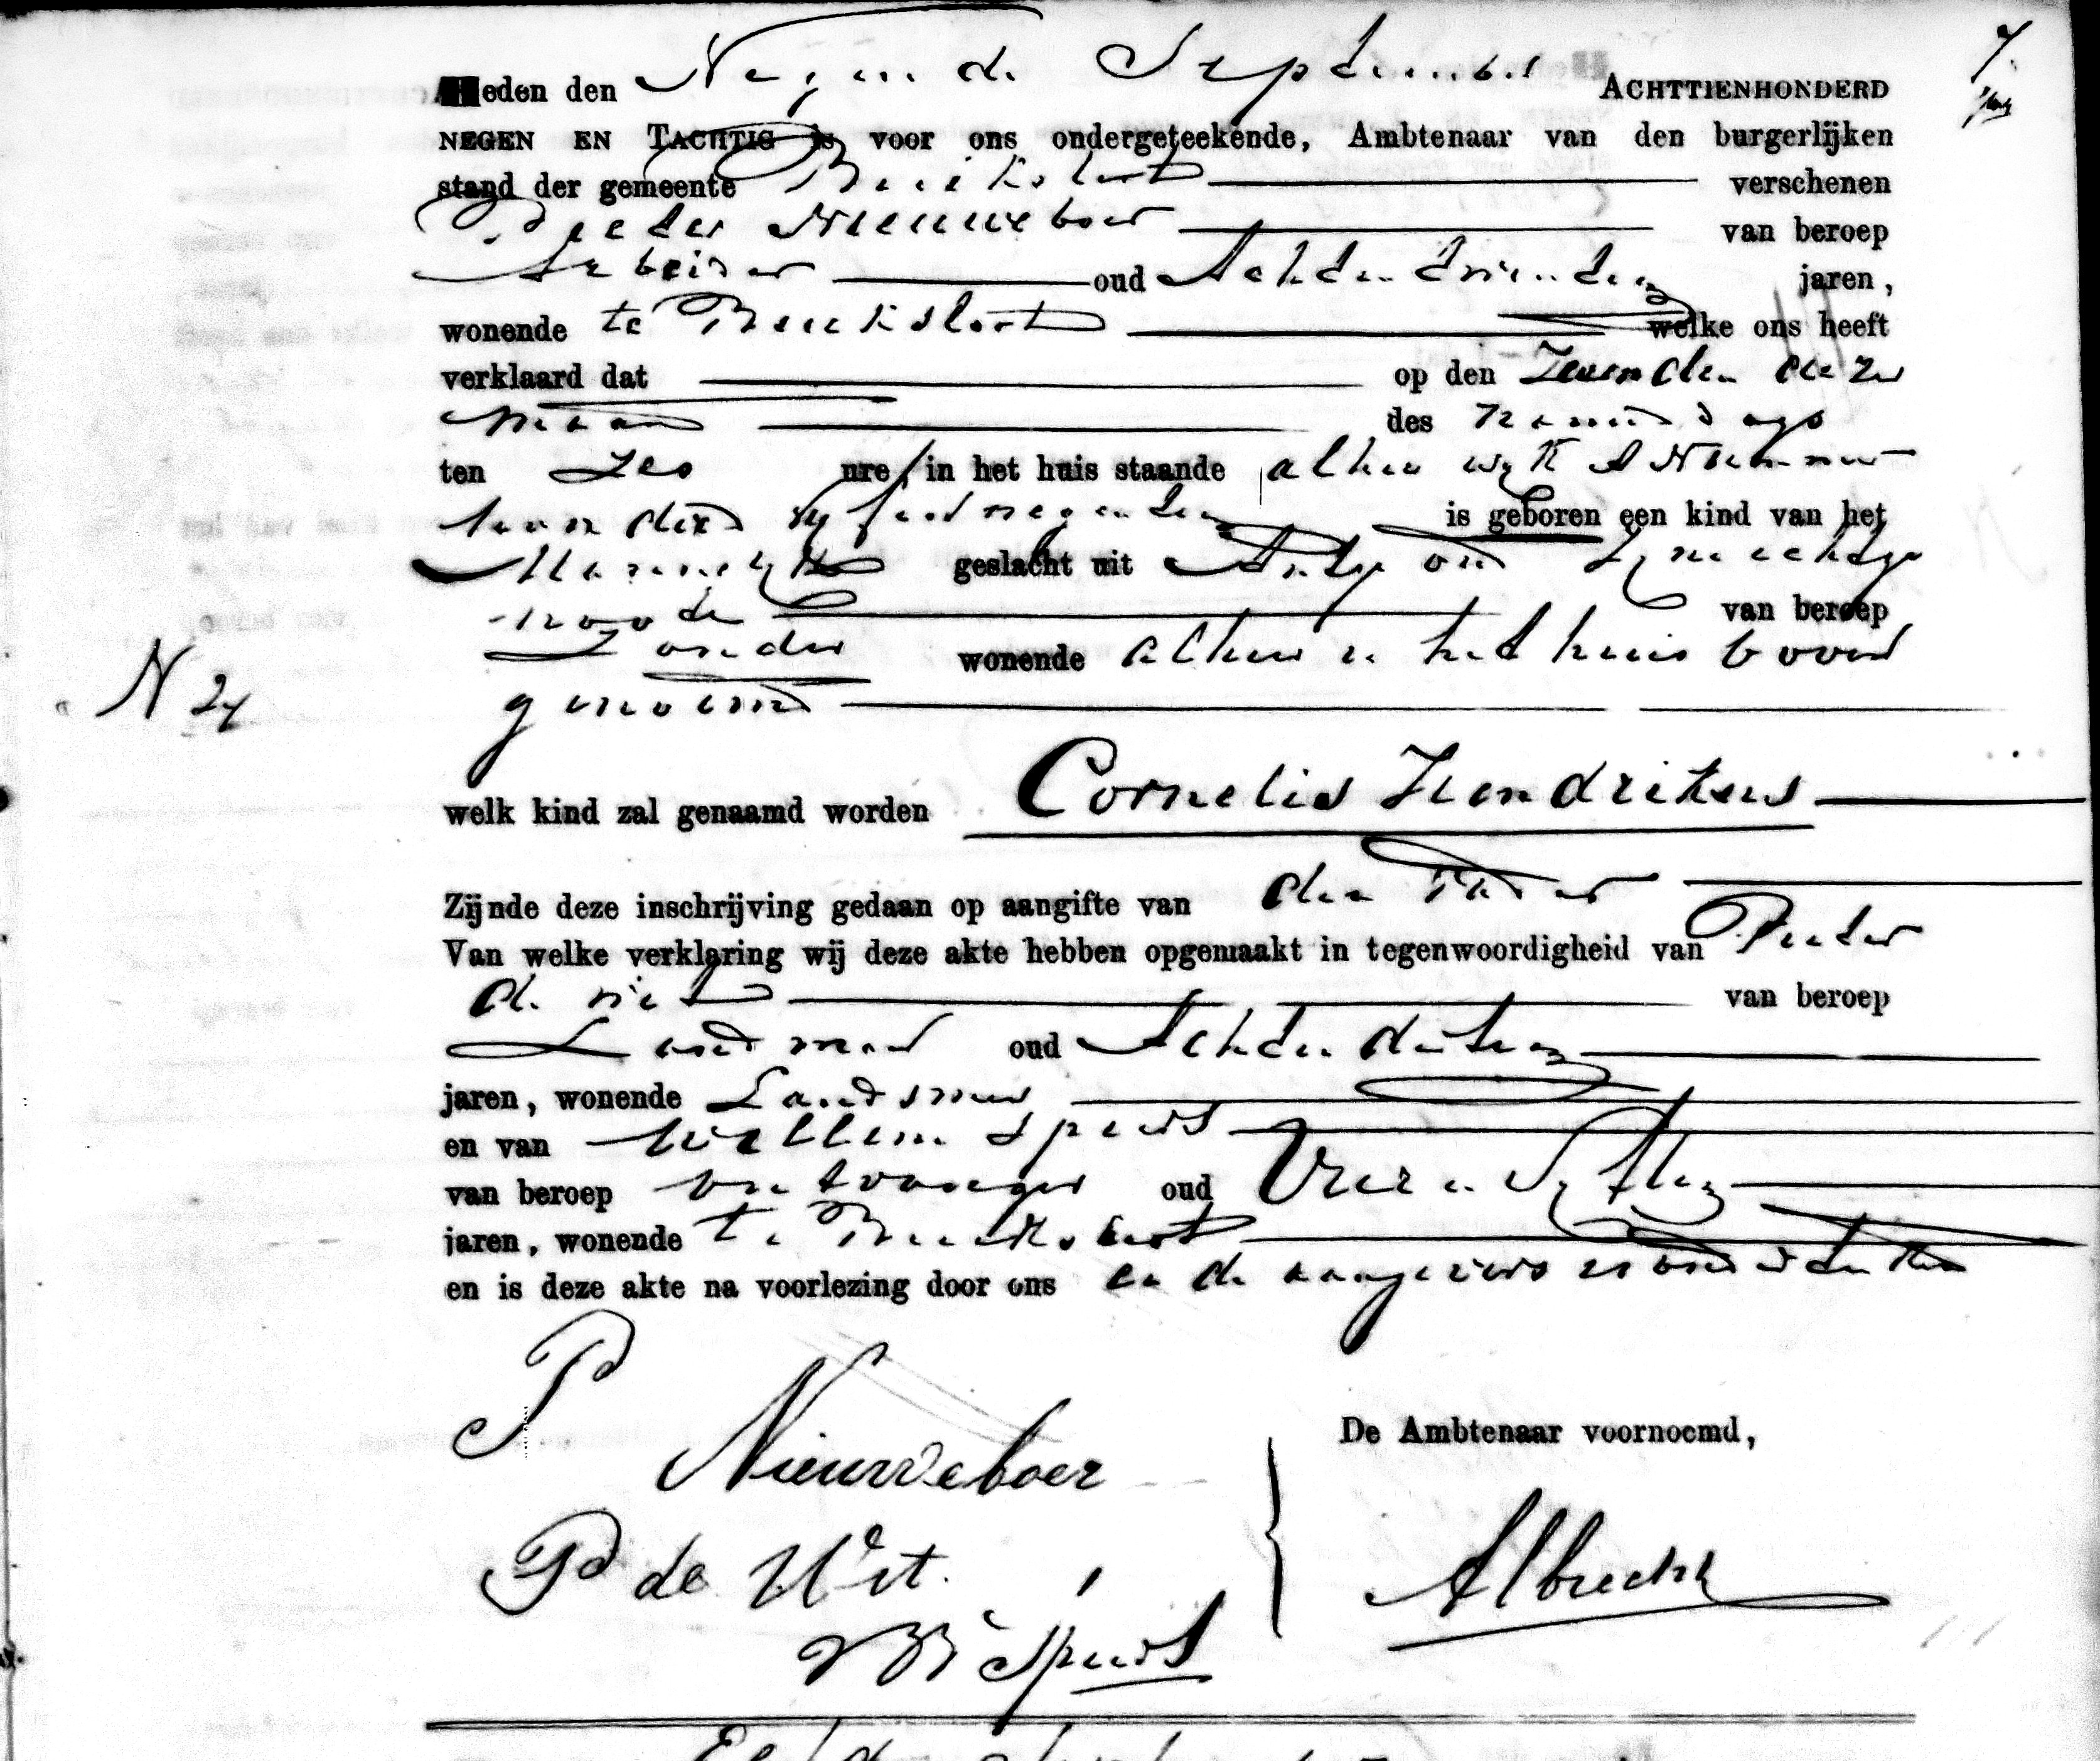 Heden den Negende September ACHTTIENHONDERD
NEGEN EN TACHTIG is voor ons ondergeteekende, Ambtenaar van den burgerlijken
stand der gemeente Buiksloot verschenen
Pieter Nieuweboer van beroep
Arbeider oud Achtendertig jaren,
wonende te Buiksloot welke ons heeft
verklaard dat op den Zevenden dezer
maand des namiddags
ten zes ure, in het huis staande alhier wijk A Nummer
honderd vijfennegentig is geboren een kind van het
Mannelijk geslacht uit Antje
van beroep
zonder wonende alhier in het huis boven
genoemd
N 24
welk kind zal genaamd worden Cornelis Hendrikus
Zijnde deze inschrijving gedaan op aangifte van den Vader
Van welke verklaring wij deze akte hebben opgemaakt in tegenwoordigheid van Pieter
de Wit van beroep
Landman oud Achtendertig
jaren, wonende Landsmeer
en van Willem Spuij
van beroep ontvanger oud Vierenvijftig
jaren, wonende te Buiksloot
en is deze akte na voorlezing door ons en de aangever onderteekend
P Nieuweboer
De Ambtenaar voornoemd,
P de Wit
Albrecht